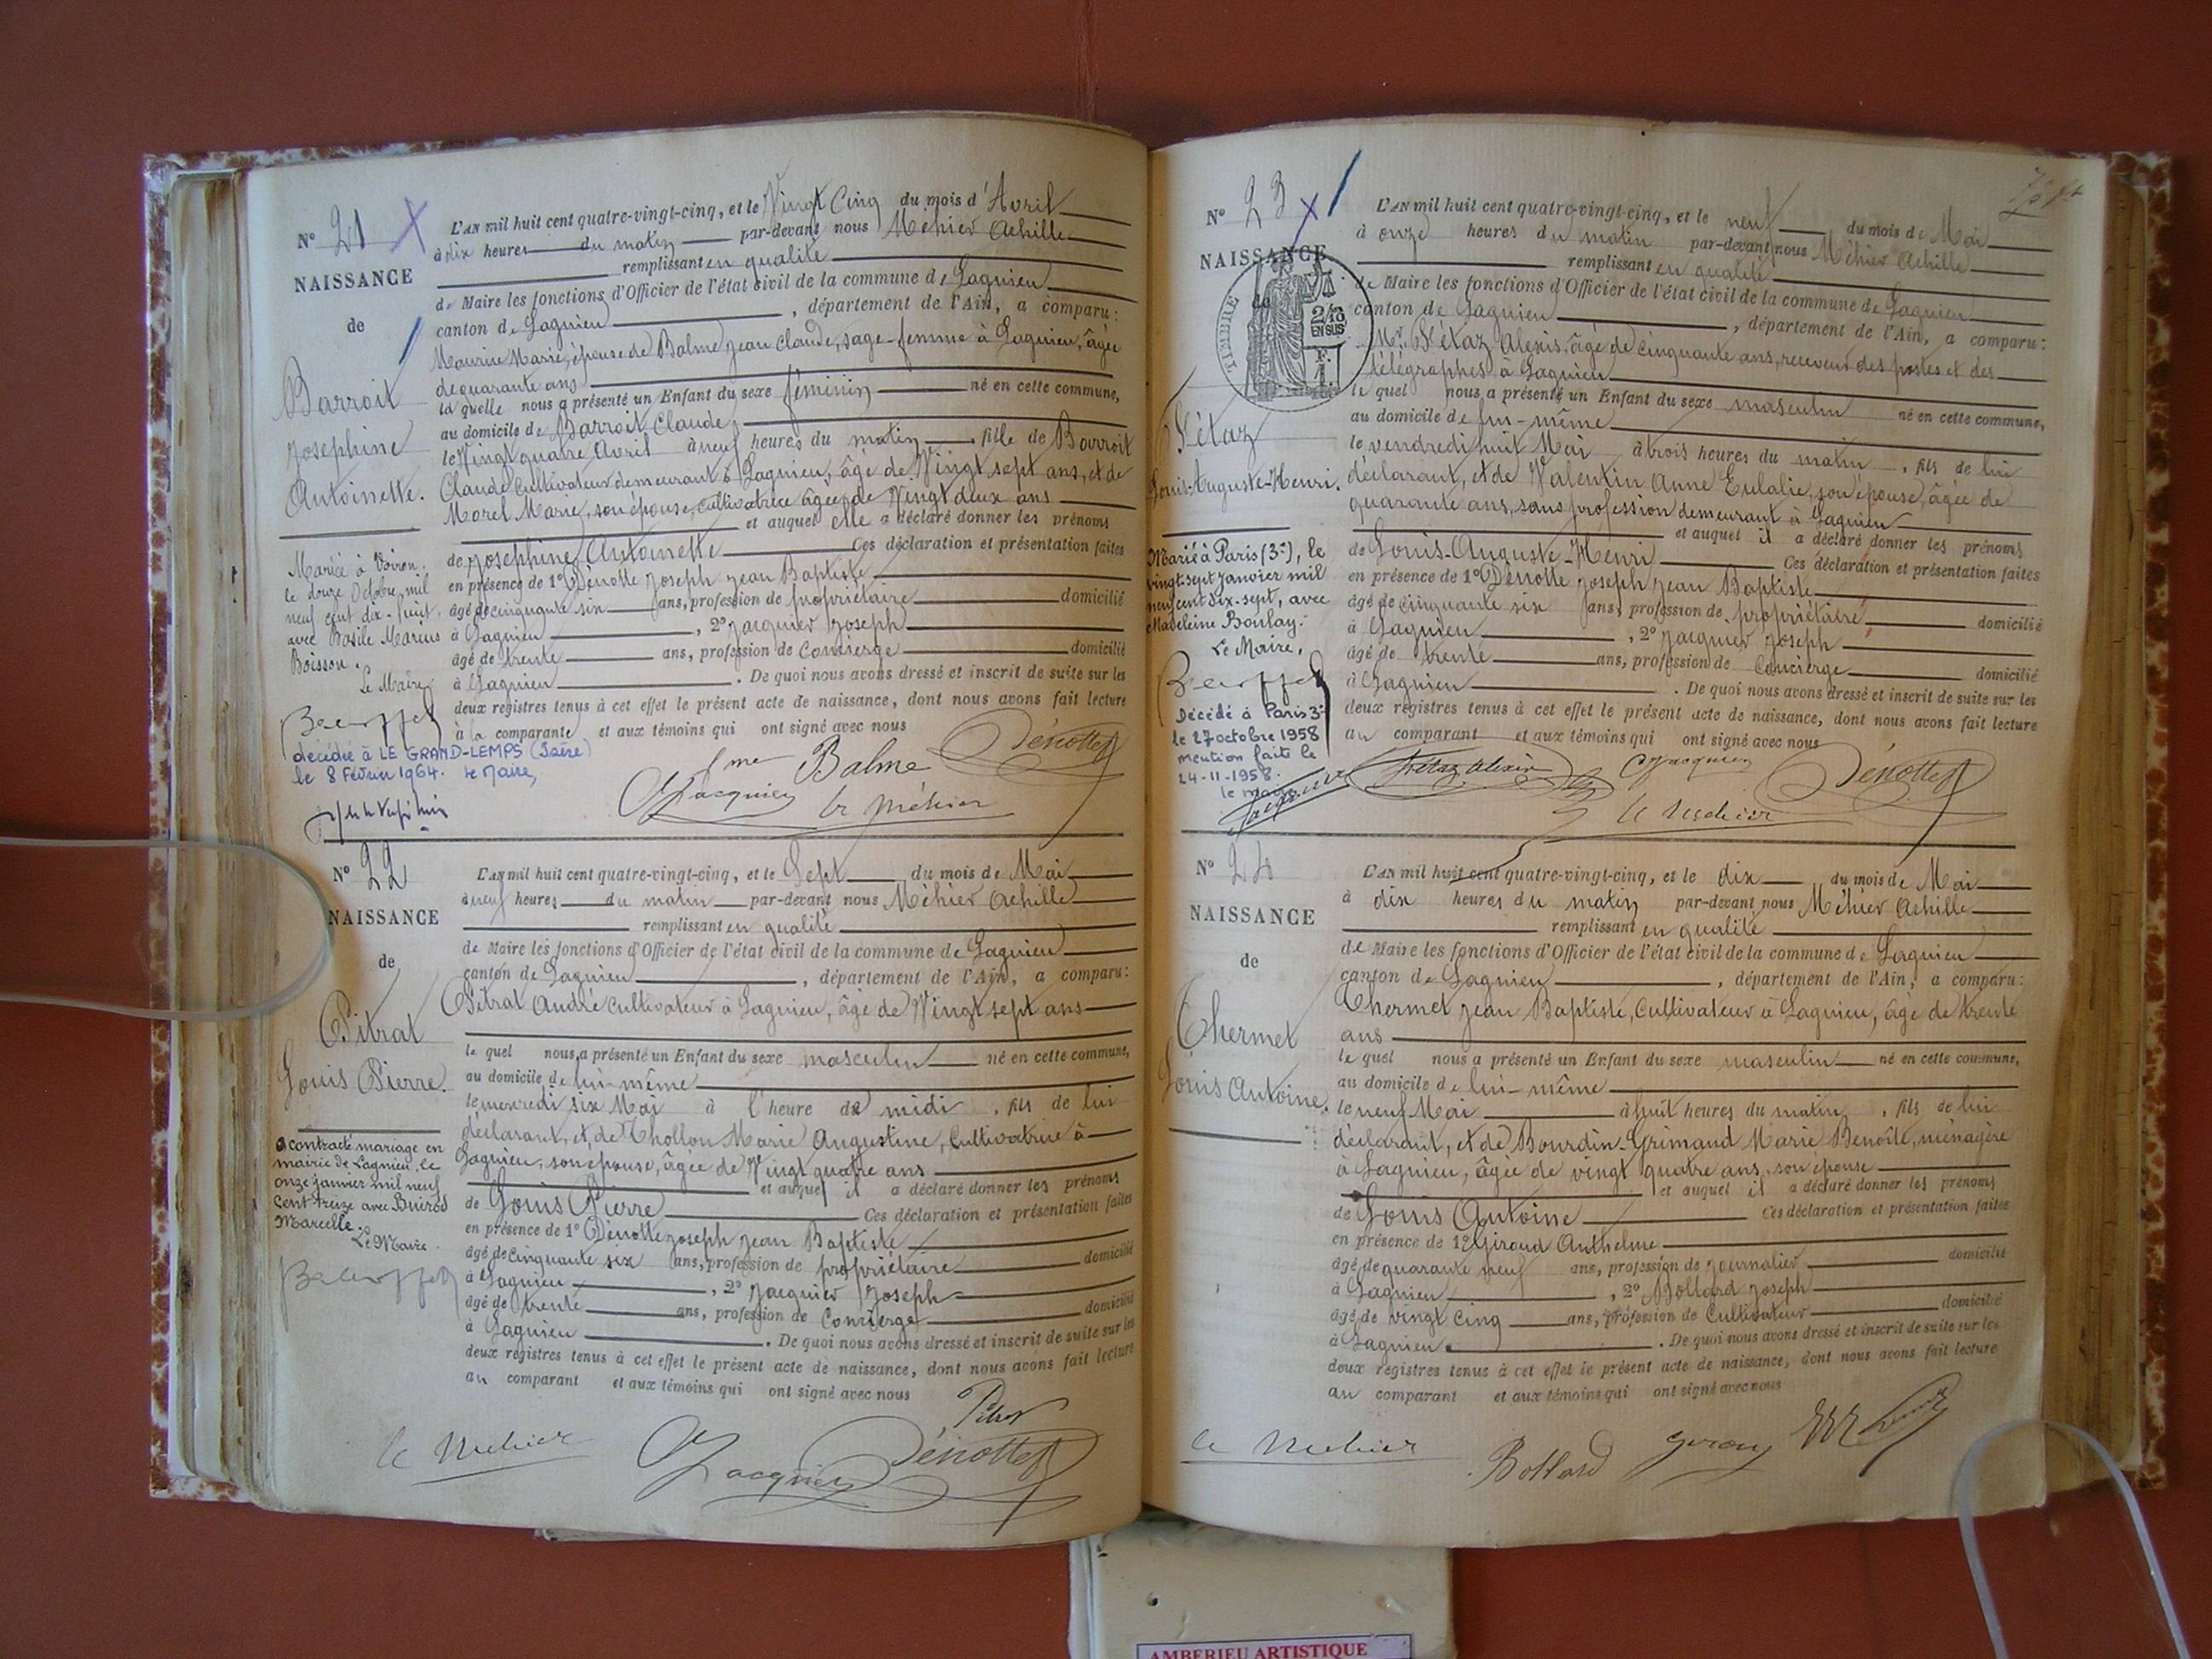 N° 21
NAISSANCE
de
Barroit
Josephine
Antoinette.
Mariée à Voiron,
le douze Octobre mil
neuf cent dix-huit,
avec Basile Marius
Boisson.
Le Maire
décédée à LE GRAND-LEMPS (Isère)
le 8 Février 1964. Le Maire,
L'AN mil huit cent quatre-vingt-cinq, et le Vingt Cinq du mois d'Avril
à dix heures du matin par-devant nous Méhier Achille
remplissant en qualité
de Maire les fonctions d'Officier de l'état civil de la commune de Lagnieu
canton de Lagnieu, département de l'Ain, a comparu:
Maurin Marie, épouse de Balme Jean Claude, sage-femme à Lagnieu, âgée
de quarante ans
la quelle nous a présenté un Enfant du sexe féminin né en cette commune,
au domicile de Barroit Claude
le Vingt quatre Avril à neuf heures du matin, fille de Barroit
Claude Cultivateur demeurant à Lagnieu, âgé de Vingt sept ans, et de
Morel Marie, son épouse, cultivatrice âgée de Vingt deux ans
et auquel elle a déclaré donner les prénoms
de Josephine Antoinette Ces déclaration et présentation faites
en présence de 1° Dénotte Joseph Jean Baptiste
âgé de cinquante six ans, profession de propriétaire domicilié
à Lagnieu, 2° Jacquier Joseph
âgé de trente ans, profession de Concierge domicilié
à Lagnieu. De quoi nous avons dressé et inscrit de suite sur les
deux registres tenus à cet effet le présent acte de naissance, dont nous avons fait lecture
à la comparante et aux témoins qui ont signé avec nous
fme Balme Dénotte
Jacquier le Méhier
N° 22
NAISSANCE
de
Pitrat
Louis Pierre.
a contracté mariage en
mairie de Lagnieu, le
onze janvier mil neuf
cent treize avec
Marcelle.
Le Maire
L'AN mil huit cent quatre-vingt-cinq, et le Sept du mois de Mai
à neuf heures du matin par-devant nous Méhier Achille
remplissant en qualité
de Maire les fonctions d'Officier de l'état civil de la commune de Lagnieu
canton de Lagnieu, département de l'Ain, a comparu:
Pitrat André cultivateur à Lagnieu, âgé de Vingt sept ans
le quel nous a présenté un Enfant du sexe masculin né en cette commune,
au domicile de lui-même
le mercredi six Mai à l'heure de midi, fils de lui
déclarant, et de Chollou Marie Augustine, Cultivatrice à
Lagnieu, son épouse, âgée de Vingt quatre ans
et auquel il a déclaré donner les prénoms
de Louis Pierre Ces déclaration et présentation faites
en présence de 1° Dénotte Joseph Jean Baptiste
âgé de cinquante six ans, profession de propriétaire domicilié
à Lagnieu, 2° Jacquier Joseph
âgé de trente ans, profession de Concierge domicilié
à Lagnieu. De quoi nous avons dressé et inscrit de suite sur les
deux registres tenus à cet effet le présent acte de naissance, dont nous avons fait lecture
au comparant et aux témoins qui ont signé avec nous
Pitrat
le Méhier Jacquier Dénotte
N° 23
NAISSANCE
de
TIMBRE
2/10
EN SUS
Fétaz
Louis-Auguste-Henri.
Marié à Paris (3e), le
vingt-sept janvier mil
neuf cent dix-sept, avec
Madeleine Boulay.
Le Maire,
Décédé à Paris 3e
le 27 octobre 1958
mention faite le
24-11-1958.
le maire
L'AN mil huit cent quatre-vingt-cinq, et le neuf du mois de Mai
à onze heures du matin par-devant nous Méhier Achille
remplissant en qualité
de Maire les fonctions d'Officier de l'état civil de la commune de Lagnieu
canton de Lagnieu, département de l'Ain, a comparu:
Mr. Fétaz Alexis, âgé de cinquante ans, receveur des postes et des
télégraphes à Lagnieu
le quel nous a présenté un Enfant du sexe masculin né en cette commune,
au domicile de lui-même
le vendredi huit Mai à trois heures du matin, fils de lui
déclarant, et de Valentin Anne Eulalie, son épouse, âgée de
quarante ans, sans profession demeurant à Lagnieu
et auquel il a déclaré donner les prénoms
de Louis-Auguste-Henri Ces déclaration et présentation faites
en présence de 1° Dénotte Joseph Jean Baptiste
âgé de cinquante six ans, profession de propriétaire domicilié
à Lagnieu, 2° Jacquier Joseph
âgé de trente ans, profession de Concierge domicilié
à Lagnieu. De quoi nous avons dressé et inscrit de suite sur les
deux registres tenus à cet effet le présent acte de naissance, dont nous avons fait lecture
au comparant et aux témoins qui ont signé avec nous
Fétaz Alexis Jacquier Dénotte
le Méhier
N° 24
NAISSANCE
de
Thermet
Louis Antoine.
L'AN mil huit cent quatre-vingt-cinq, et le dix du mois de Mai
à dix heures du matin par-devant nous Méhier Achille
remplissant en qualité
de Maire les fonctions d'Officier de l'état civil de la commune de Lagnieu
canton de Lagnieu, département de l'Ain, a comparu:
Thermet Jean Baptiste, Cultivateur à Lagnieu, âgé de trente
ans
le quel nous a présenté un Enfant du sexe masculin né en cette commune,
au domicile de lui-même
le neuf Mai à huit heures du matin, fils de lui
déclarant, et de Bourdin-Grimaud Marie Benoîte, ménagère
à Lagnieu, âgée de vingt quatre ans, son épouse
et auquel il a déclaré donner les prénoms
de Louis Antoine Ces déclaration et présentation faites
en présence de 1° Giroud Anthelme
âgé de quarante neuf ans, profession de journalier domicilié
à Lagnieu, 2° Bollard Joseph
âgé de vingt cinq ans, profession de Cultivateur domicilié
à Lagnieu. De quoi nous avons dressé et inscrit de suite sur les
deux registres tenus à cet effet le présent acte de naissance, dont nous avons fait lecture
au comparant et aux témoins qui ont signé avec nous
le Méhier Bollard
AMBERIEU ARTISTIQUE